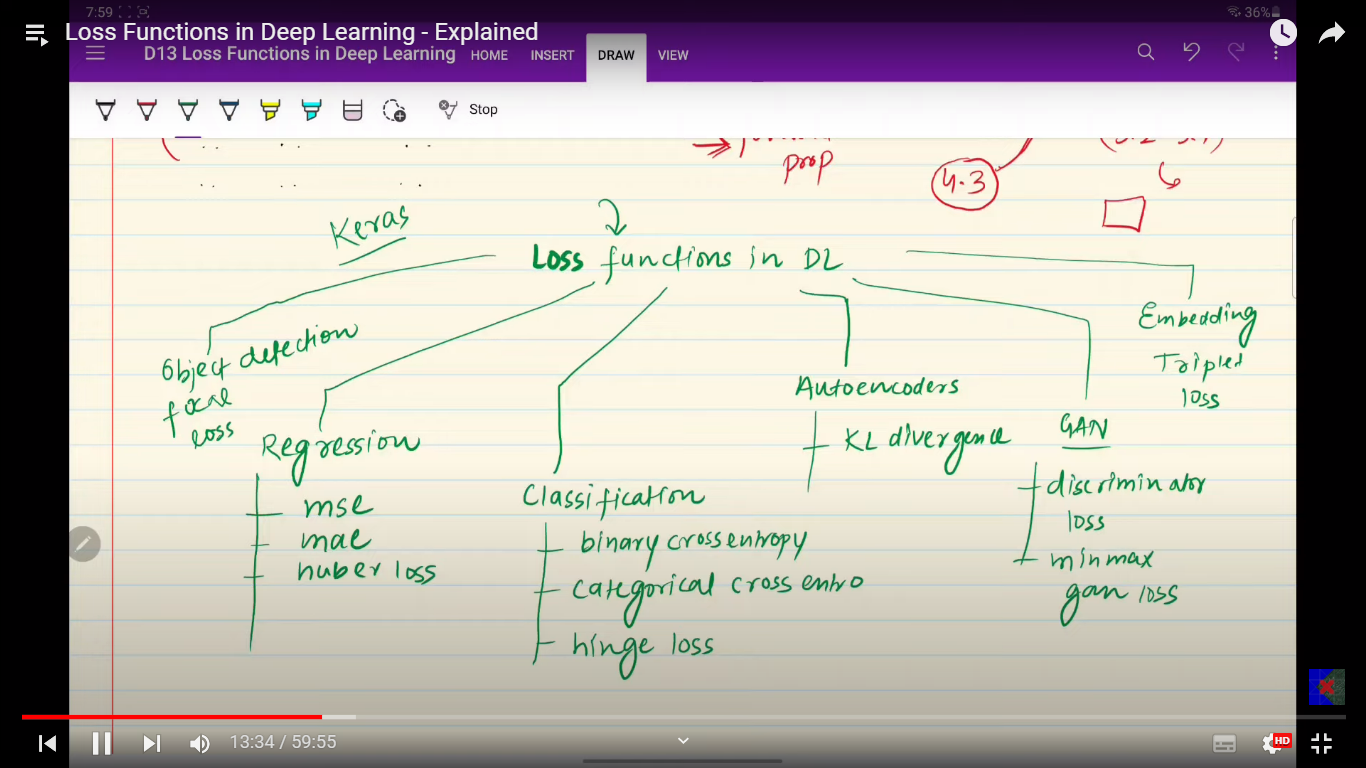 7:59
36%
Loss Functions in Deep Learning - Explained
D13 Loss Functions in Deep Learning
HOME INSERT DRAW VIEW
Stop
prop
4.3
Keras
Loss functions in DL
Object detection
focal
loss
Regression
mse
mae
huber loss
Classification
binary crossentropy
categorical cross entro
hinge loss
Autoencoders
KL divergence
GAN
discriminator
loss
minmax
gan loss
Embedding
Triplet
loss
13:34 / 59:55
HD